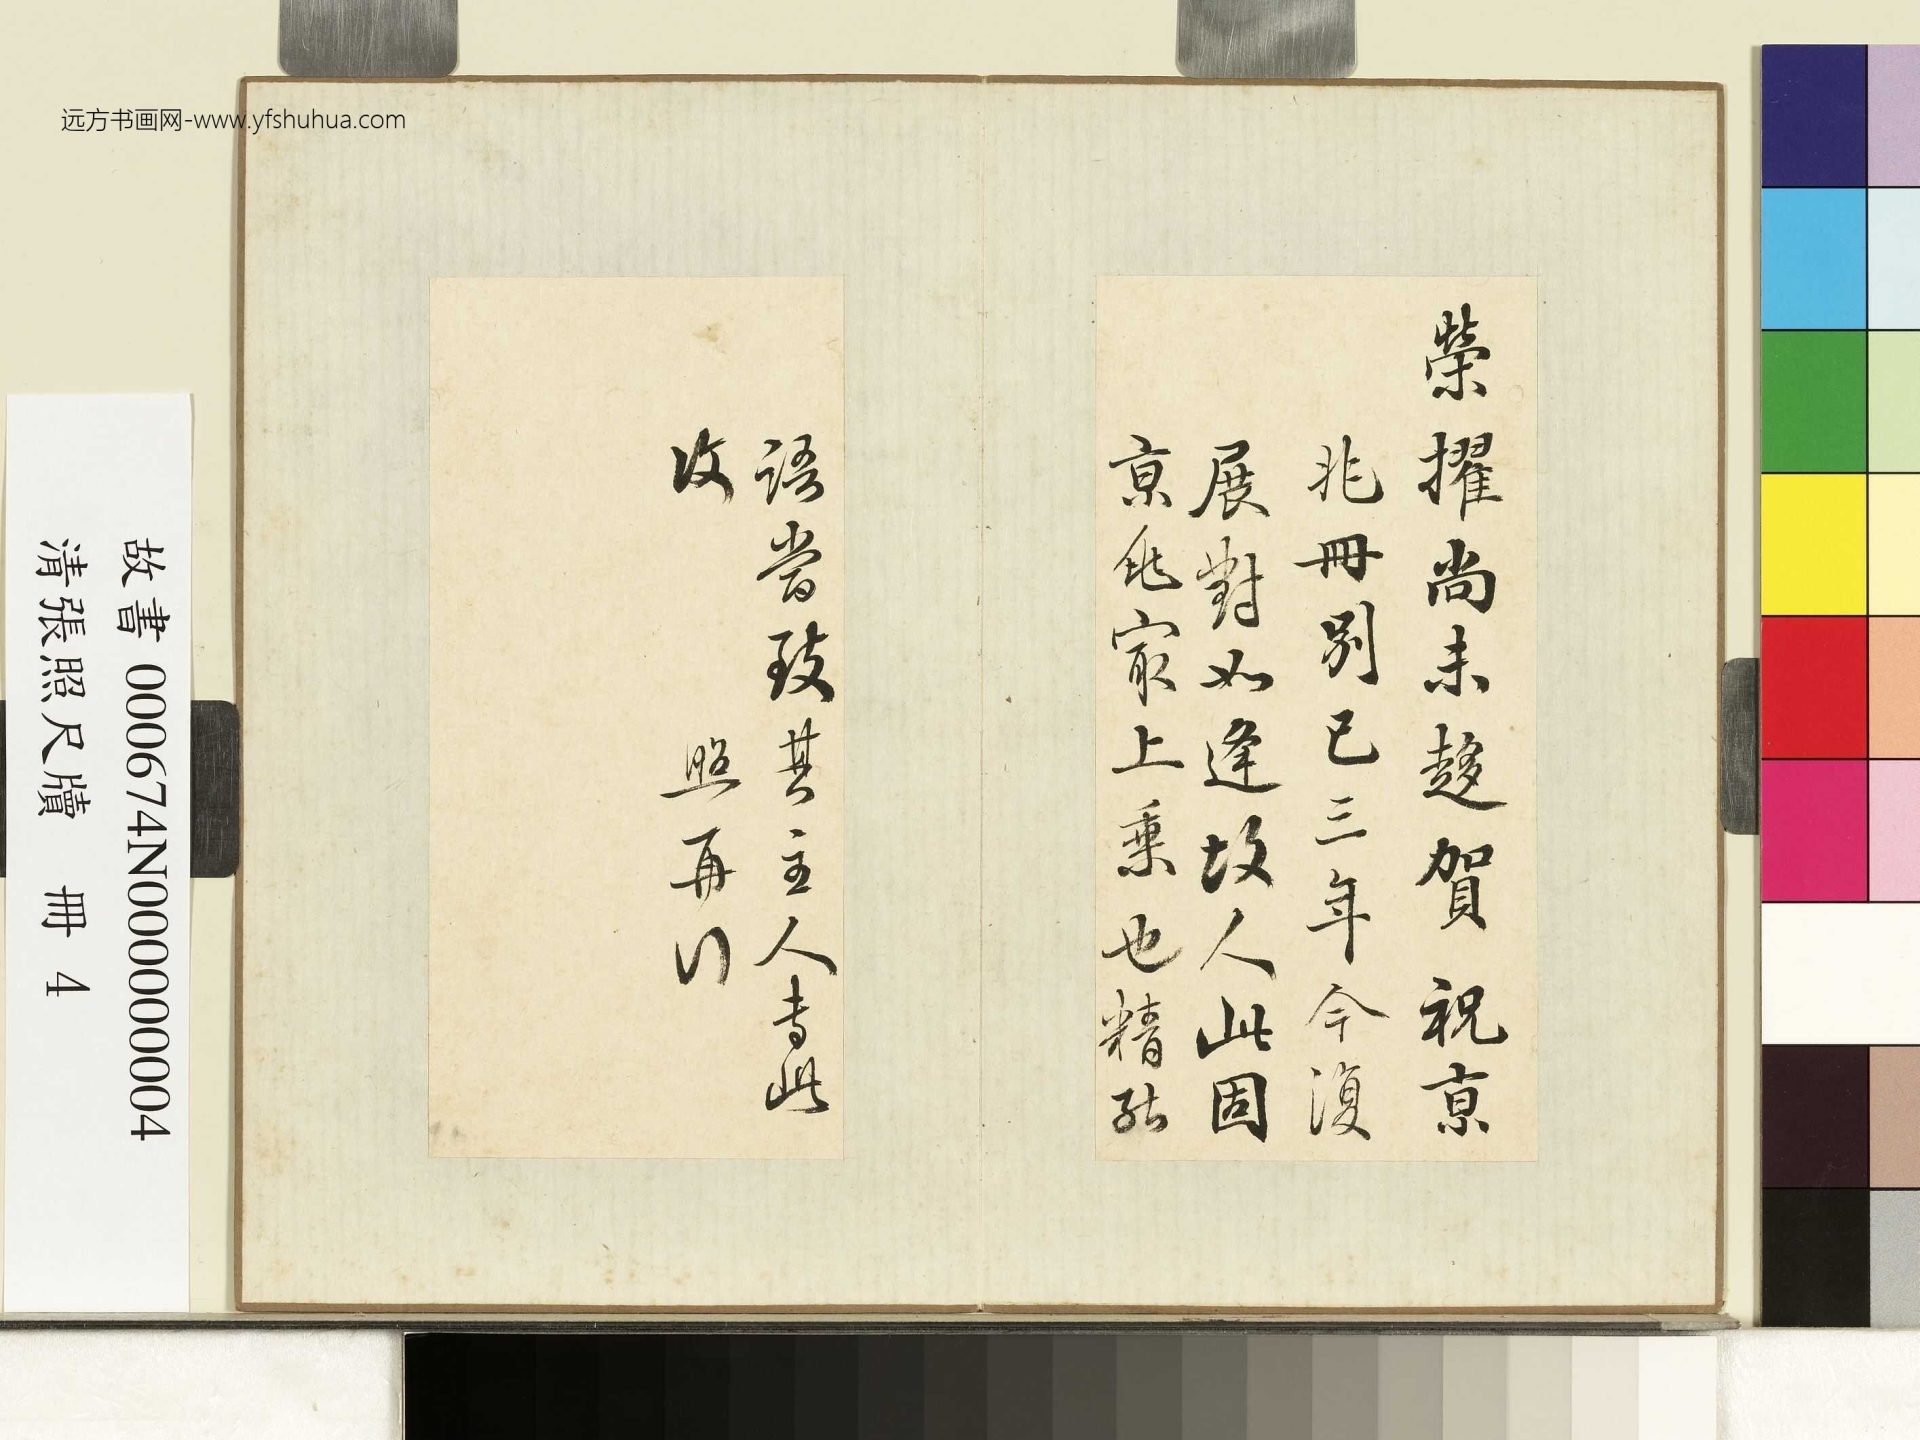 远方书画网-www.yfshuhua.com
榮擢尚未趍賀祝京
兆冊別已三年今復
展對如逢故人此固
京兆最上乗也精於
語當致其主人專此
收
照再行
故書 000674N000000004
清張照尺牘 冊 4